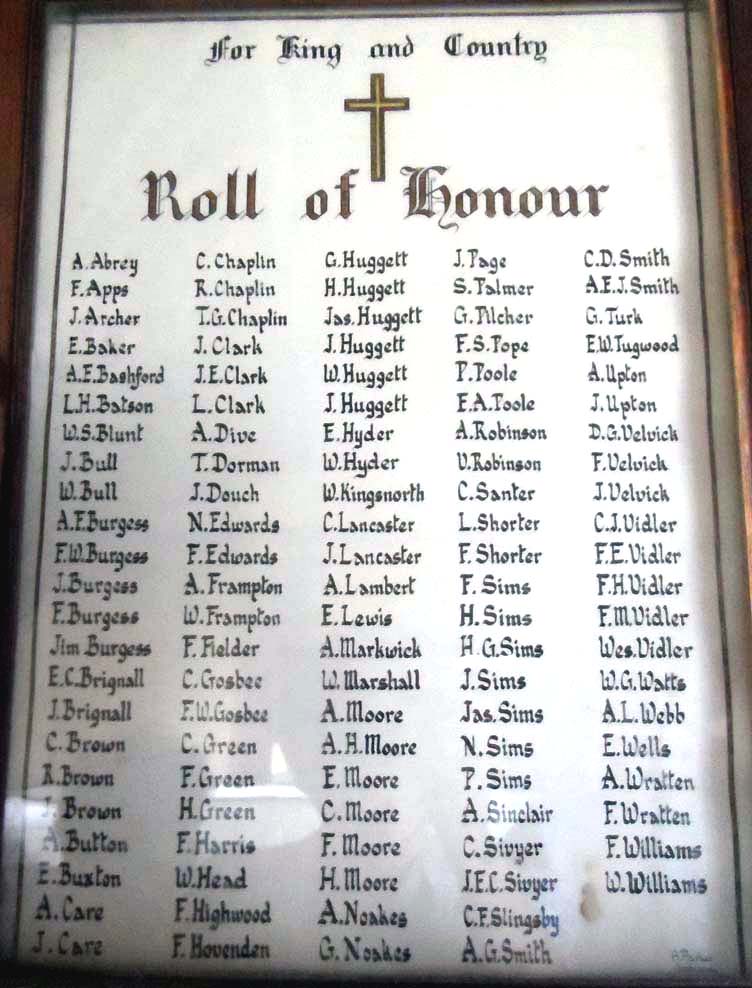 For King and Country
Roll of Honour
A. Abrey
F. Apps
J. Archer
E. Baker
A.E. Bashford
L.H. Batson
W.S. Blunt
J. Bull
W. Bull
A.F. Burgess
F.W. Burgess
J. Burgess
F. Burgess
Jim Burgess
E.C. Brignall
J. Brignall
C. Brown
R. Brown
J. Brown
A. Button
E. Buxton
A. Care
J. Care
C. Chaplin
R. Chaplin
T.G. Chaplin
J. Clark
J.E. Clark
L. Clark
A. Dive
T. Dorman
J. Douch
N. Edwards
F. Edwards
A. Frampton
W. Frampton
F. Fielder
C. Gosbee
F.W. Gosbee
C. Green
F. Green
H. Green
F. Harris
W. Head
F. Highwood
F. Hovenden
G. Huggett
H. Huggett
Jas. Huggett
J. Huggett
W. Huggett
J. Huggett
E. Hyder
W. Hyder
W. Kingsnorth
C. Lancaster
J. Lancaster
A. Lambert
E. Lewis
A. Markwick
W. Marshall
A. Moore
A.H. Moore
E. Moore
C. Moore
F. Moore
H. Moore
A. Noakes
G. Noakes
J. Page
S. Palmer
G. Pilcher
F.S. Pope
P. Poole
E.A. Poole
A. Robinson
V. Robinson
C. Santer
L. Shorter
F. Shorter
F. Sims
H. Sims
H.G. Sims
J. Sims
Jas. Sims
N. Sims
P. Sims
A. Sinclair
C. Sivyer
J.E.C. Sivyer
C.F. Slingsby
A.G. Smith
C.D. Smith
A.E.J. Smith
G. Turk
E.W. Tugwood
A. Upton
J. Upton
D.G. Velvick
F. Velvick
J. Velvick
C.J. Vidler
F.E. Vidler
F.H. Vidler
F.M. Vidler
Wes. Vidler
W.G. Watts
A.L. Webb
E. Wells
A. Wratten
F. Wratten
F. Williams
W. Williams